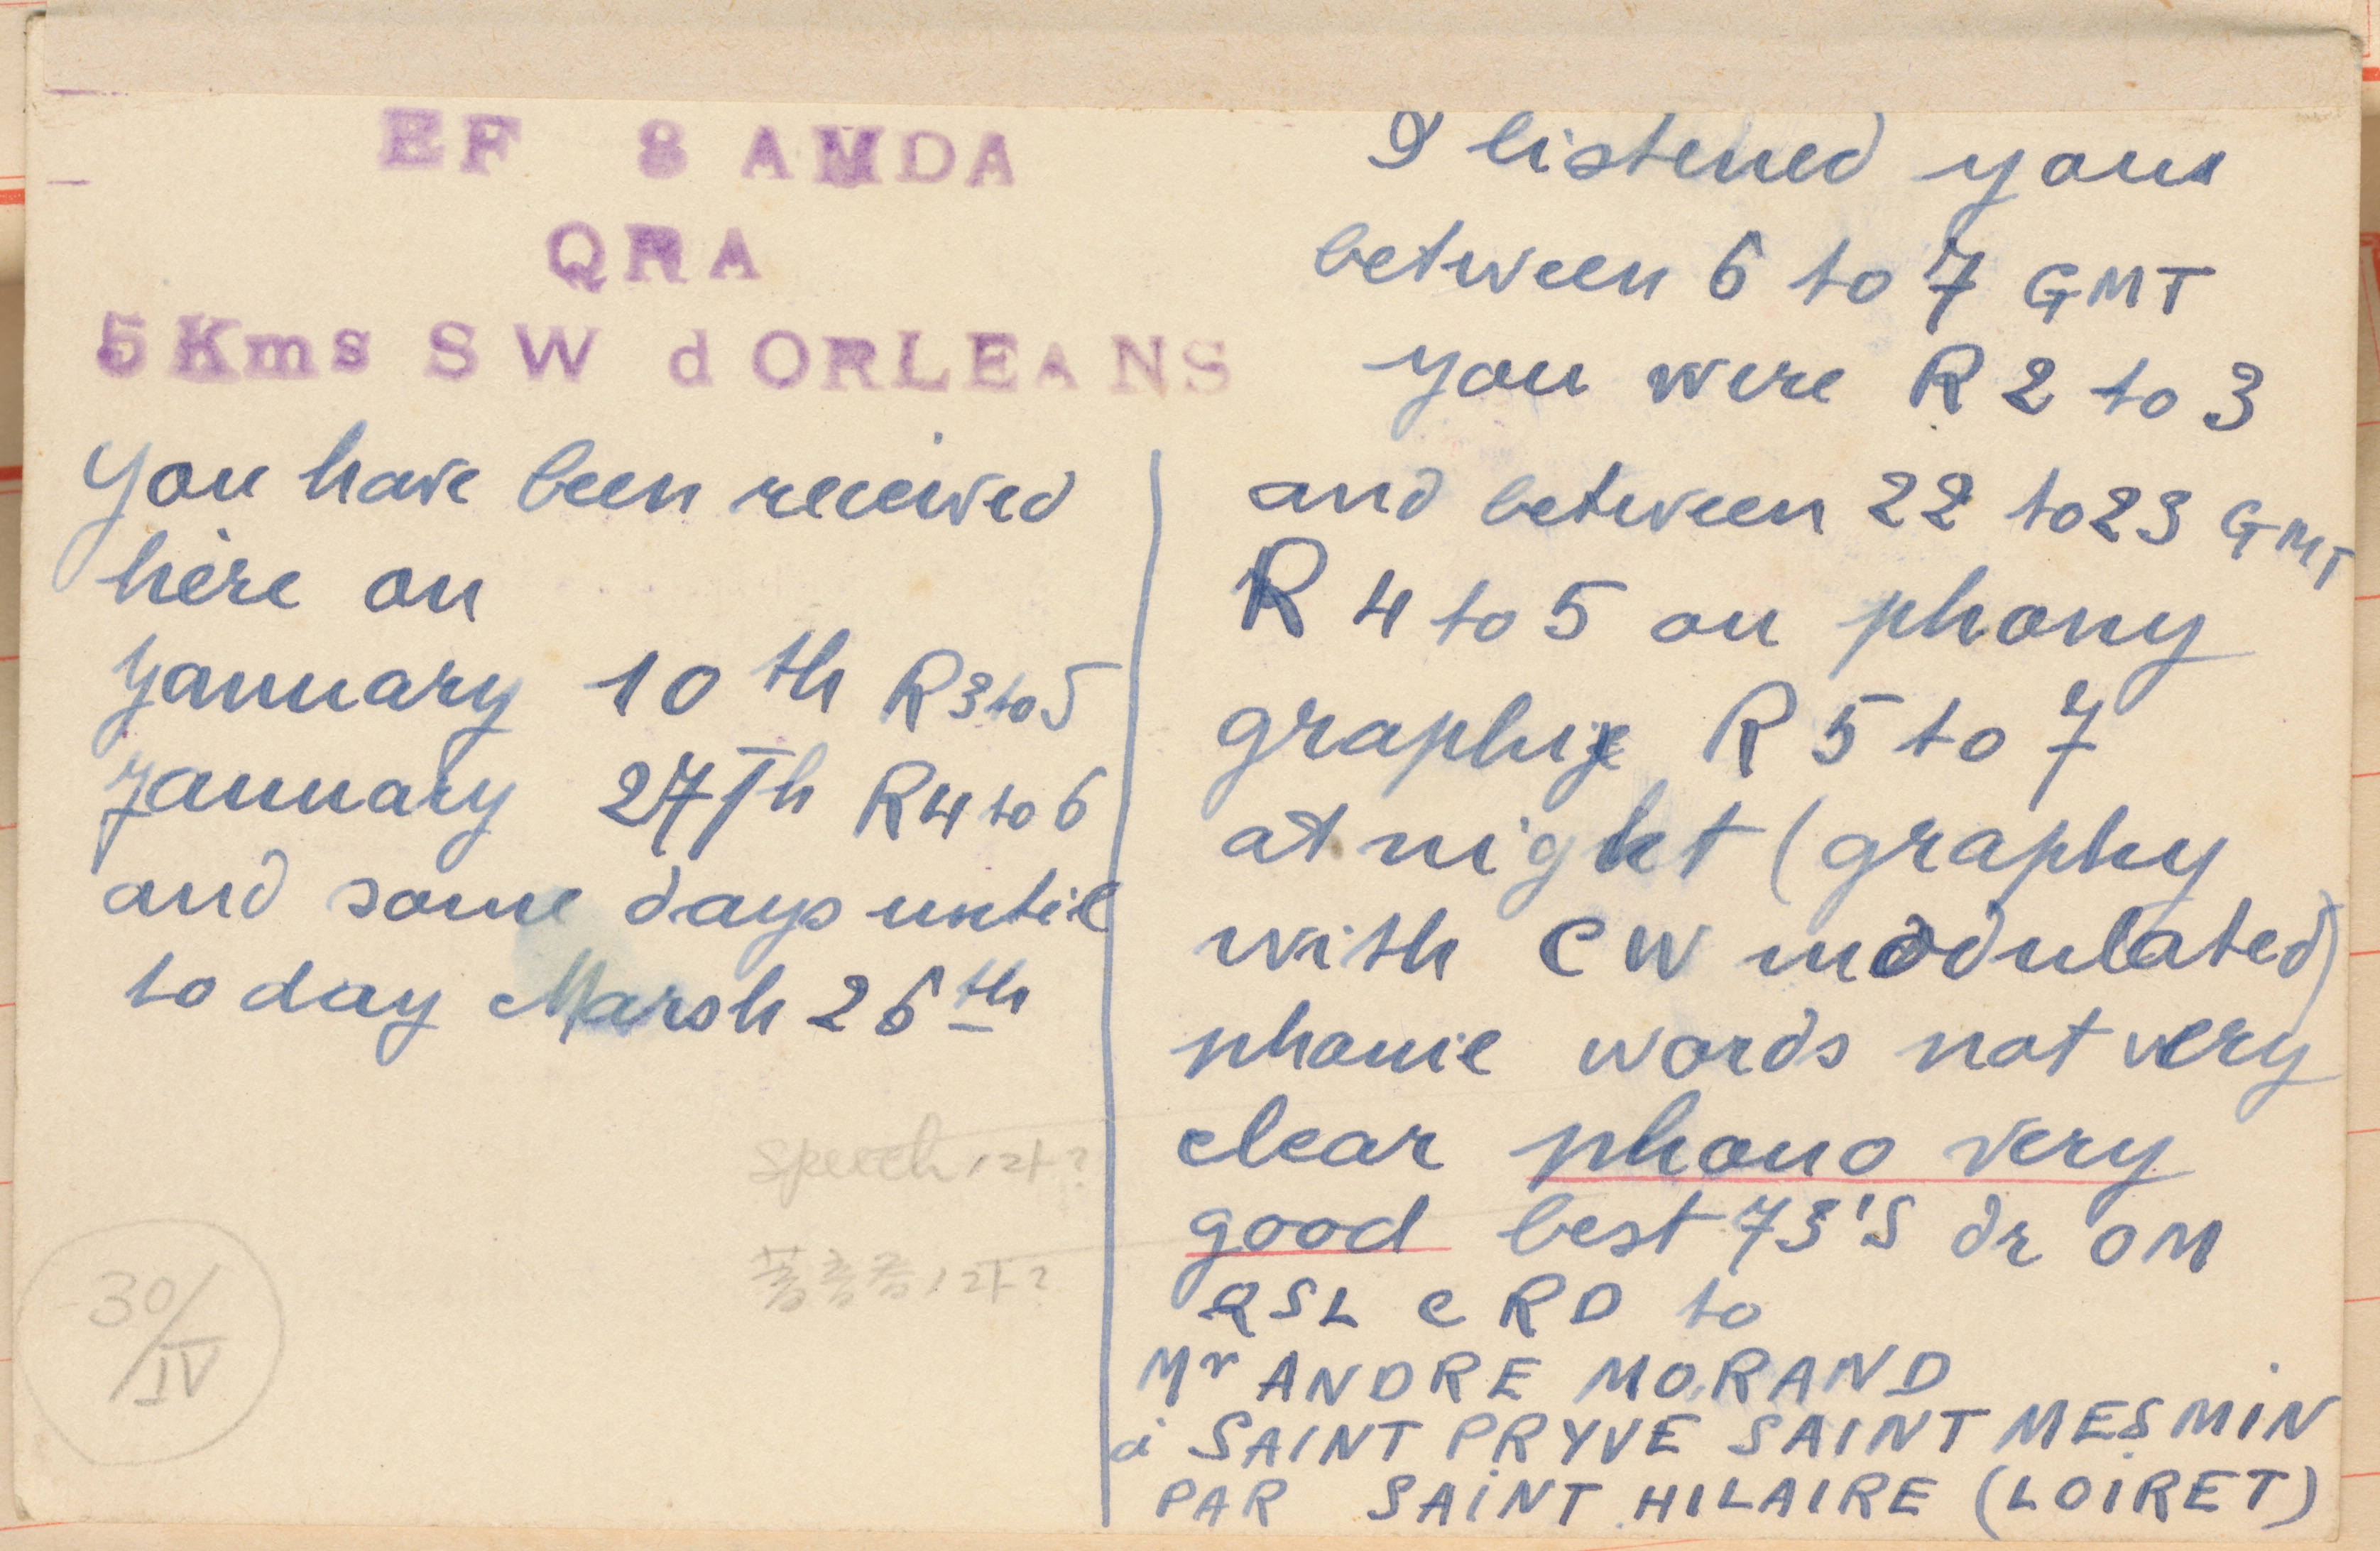 EF 8 AMDA
QRA
5 Kms S W d ORLEANS
You have been received
here on
yanuary 10 th R3to5
yanuary 27Th R4 to 6
and some days until
to day Marsh 26 th
speech
30/IV
I listened your
between 6 to 7 GMT
you were R 2 to 3
and between 22 to 23 GMT
R 4 to 5 on phony
graphie R 5 to 7
at night (graphy
with CW modulated)
phonie words not very
clear phono very
good best 73'S dr OM
QSL CRD to
Mr ANDRE MORAND
à SAINT PRYVE SAINT MESMIN
PAR SAINT HILAIRE (LOIRET)